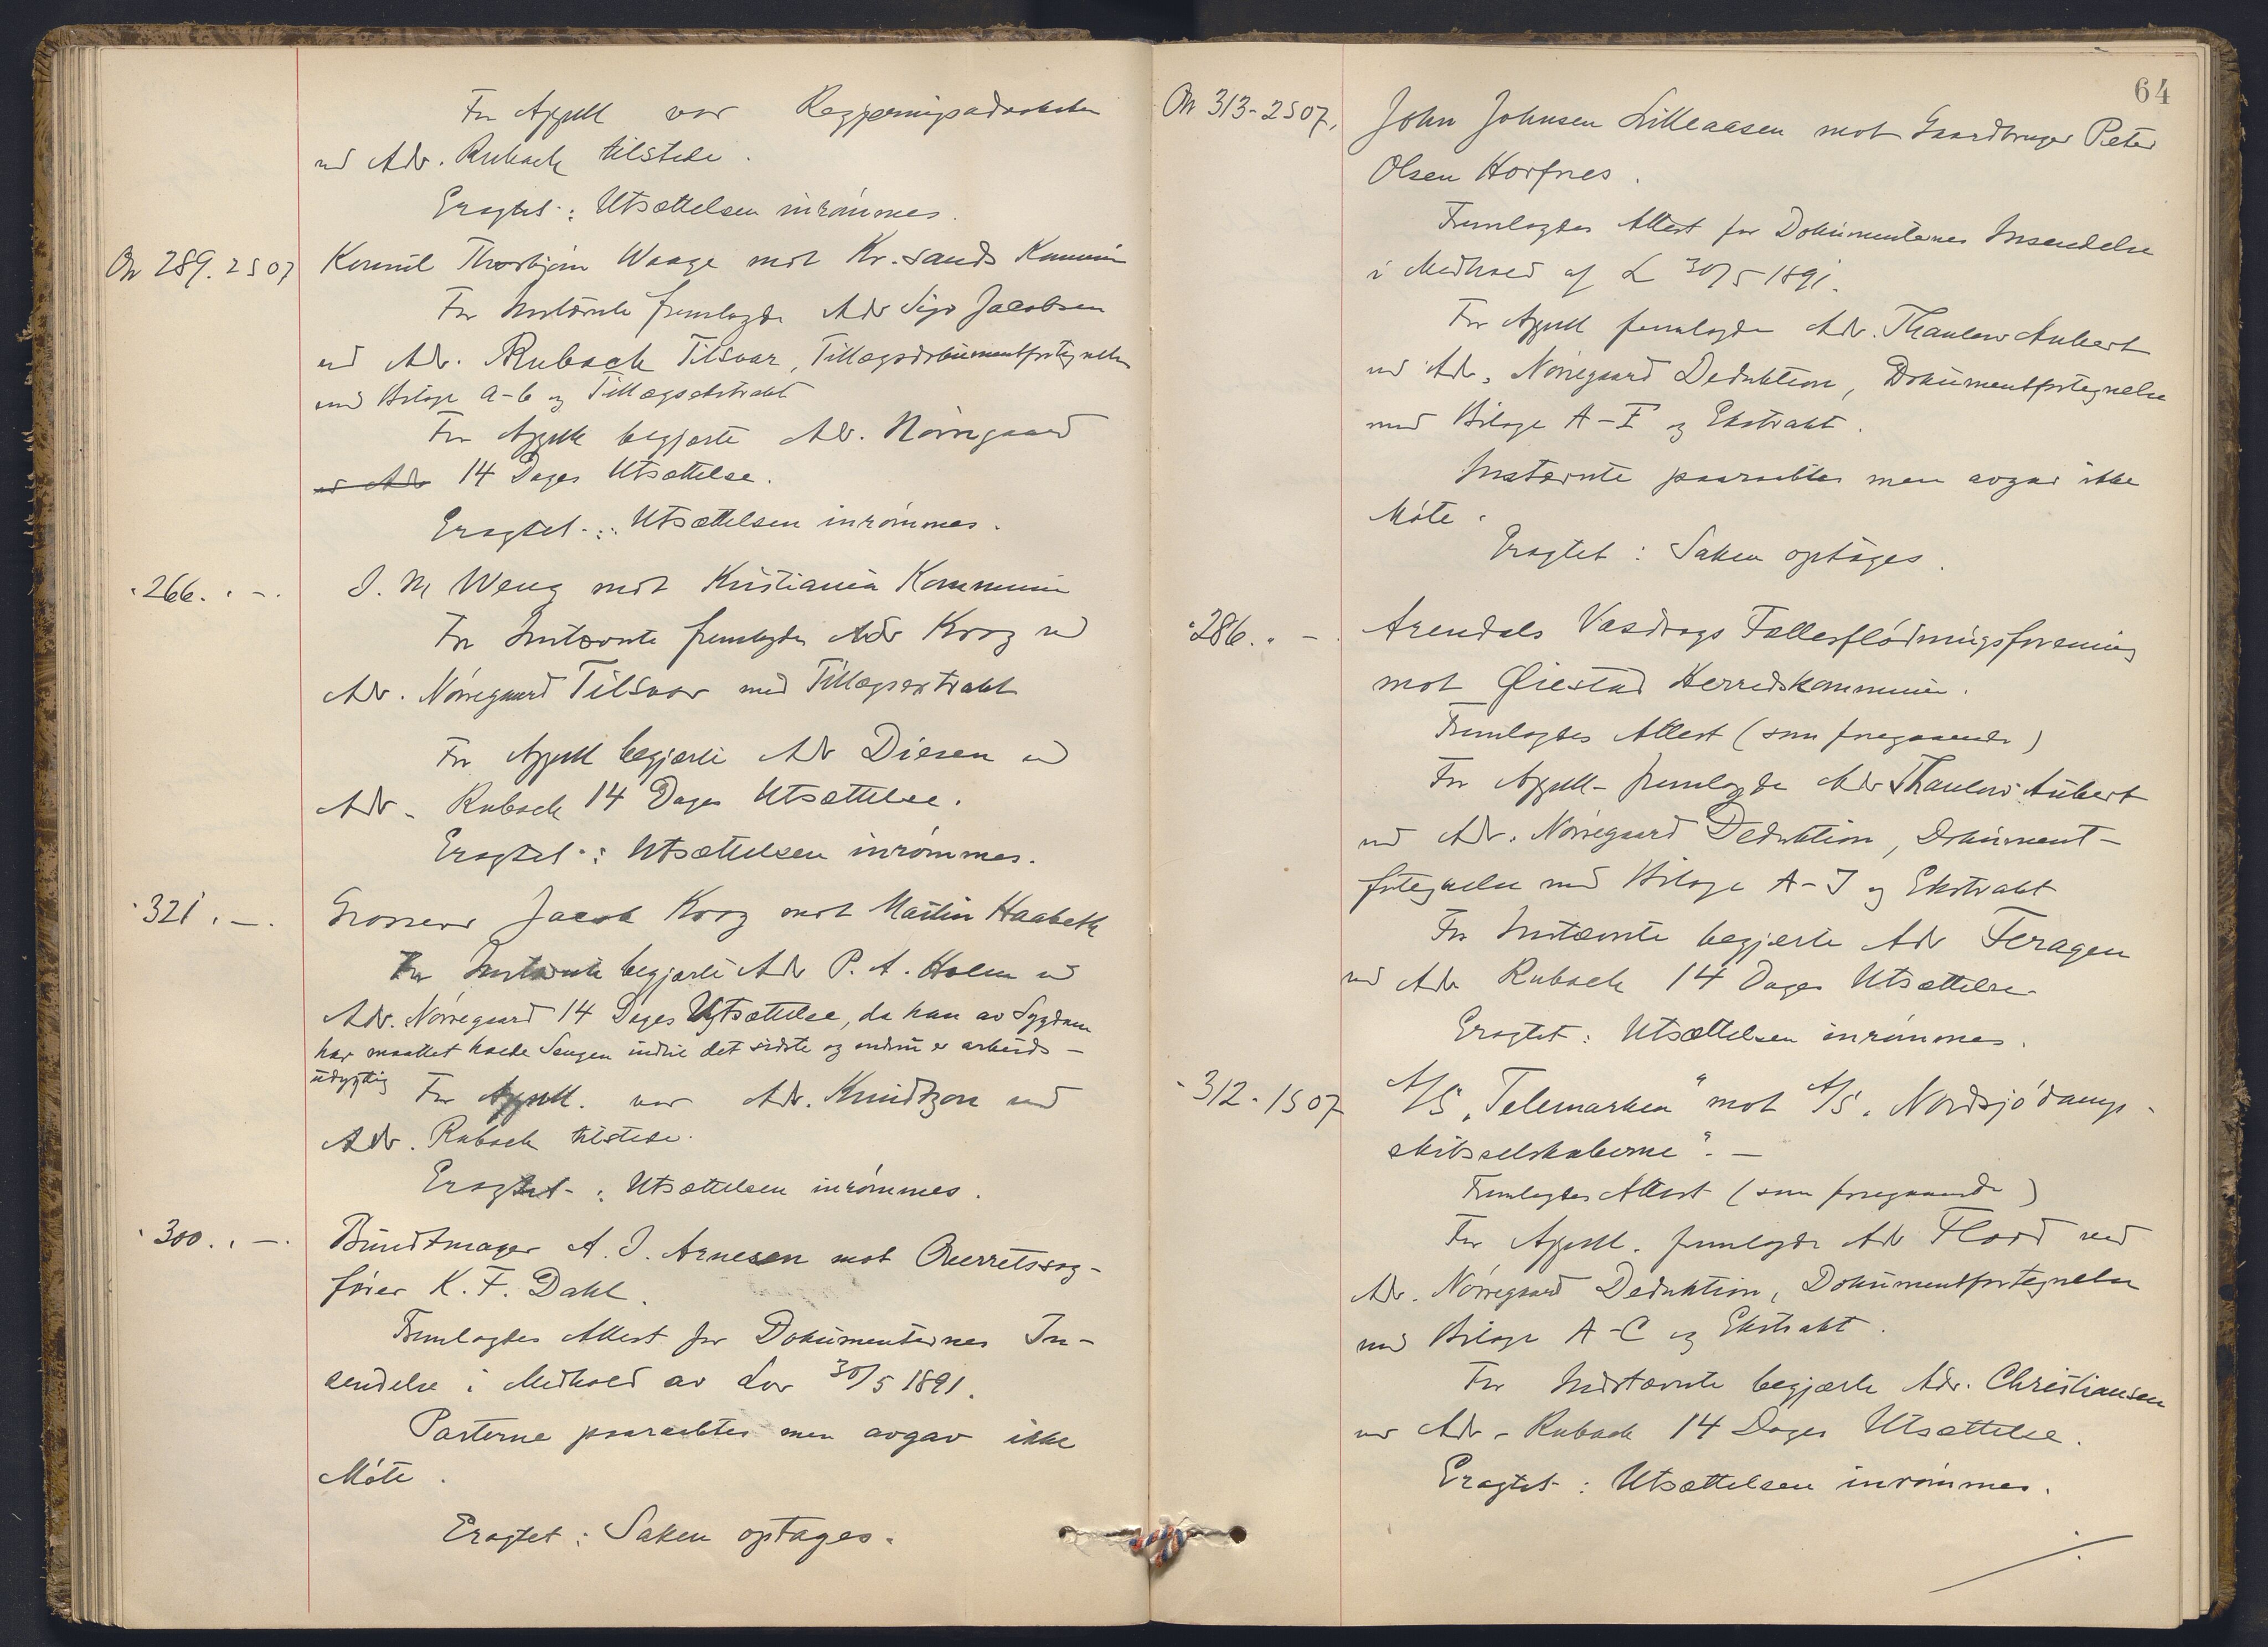 For Appell var Regjeringsadvokaten
ved Adv. Rubach tilstede.
Eragtet: Utsættelsen inrømmes.
No 289. 2 S 07
Konsul Thorbjørn Waage mot Kr.sands Kommune
For Instævnte fremlagde Adv Sigv Jacobsen
ved Adv. Rubach Tilsvar, Tillægsdokumentfortegnelse
med Bilage a-b og Tillægsekstrakt
For Appell begjærte Adv. Nørregaard
ved Adv 14 Dages Utsættelse.
Eragtet: Utsættelsen inrømmes.
" 266. " -.
I. M Weng mot Kristiania Kommune
For Instævnte fremlagde Adv Krog ved
Adv. Nørregaard Tilsvar med Tillægsextrakt
For Appell begjærte Adv Diesen ved
Adv. Rubach 14 Dages Utsættelse.
Eragtet: Utsættelsen inrømmes.
" 321. -.
Grosserer Jacob Krog mot Martin Haabeth
For Instævnte begjærte Adv P. A. Holm ved
Adv. Nørregaard 14 Dages Utsættelse, da han av Sygdom
har maattet holde Sengen indtil det sidste og endnu er arbeids-
udygtig
For Appell. var Adv. Knudtzon ved
Adv. Rubach tilstede.
Eragtet: Utsættelsen inrømmes.
" 300. " -.
Buntmager A. I. Arnesen mot Overretssag-
fører K. F. Dahl.
Fremlagdes Attest for Dokumenternes In-
sendelse i Medhold av Lov 30/5 1891.
Parterne paaraabtes men avgav ikke
Møte.
Eragtet: Saken optages.
64
No 313- 2 S 07.
John Johnsen Lilleaasen mot Gaardbruger Peter
Olsen Horfnes.
Fremlagdes Attest for Dokumenternes Insendelse
i Medhold af L 30/5 1891.
For Appell fremlagde Adv. Thaulow Aubert
ved Adv. Nørregaard Deduktion, Dokumentfortegnelse
med Bilage A-E og Ekstrakt.
Instævnte paaraabtes men avgav ikke
Møte.
Eragtet: Saken optages.
" 286. " -.
Arendals Vasdrags Fællesflødningsforening
mot Øiestad Herredskommune.
Fremlagdes Attest (som foregaaende)
For Appell- fremlagde Adv Thaulow Aubert
ved Adv. Nørregaard Deduktion, Dokument-
fortegnelse med Bilage A-I og Ekstrakt
For Instævnte begjærte Adv Feragen
ved Adv Rubach 14 Dages Utsættelse
Eragtet: Utsættelsen inrømmes.
" 312- 1 S 07
A/S "Telemarken" mot A/S "Nordsjødamp-
skibsselskaberne". -
Fremlagdes Attest (som foregaaende)
For Appell. fremlagde Adv Flood ved
Adv. Nørregaard Deduktion, Dokumentfortegnelse
med Bilage A-C og Ekstrakt.
For Indstævnte begjærte Adv. Christiansen
ved Adv. Rubach 14 Dages Utsættelse.
Eragtet: Utsættelsen inrømmes.